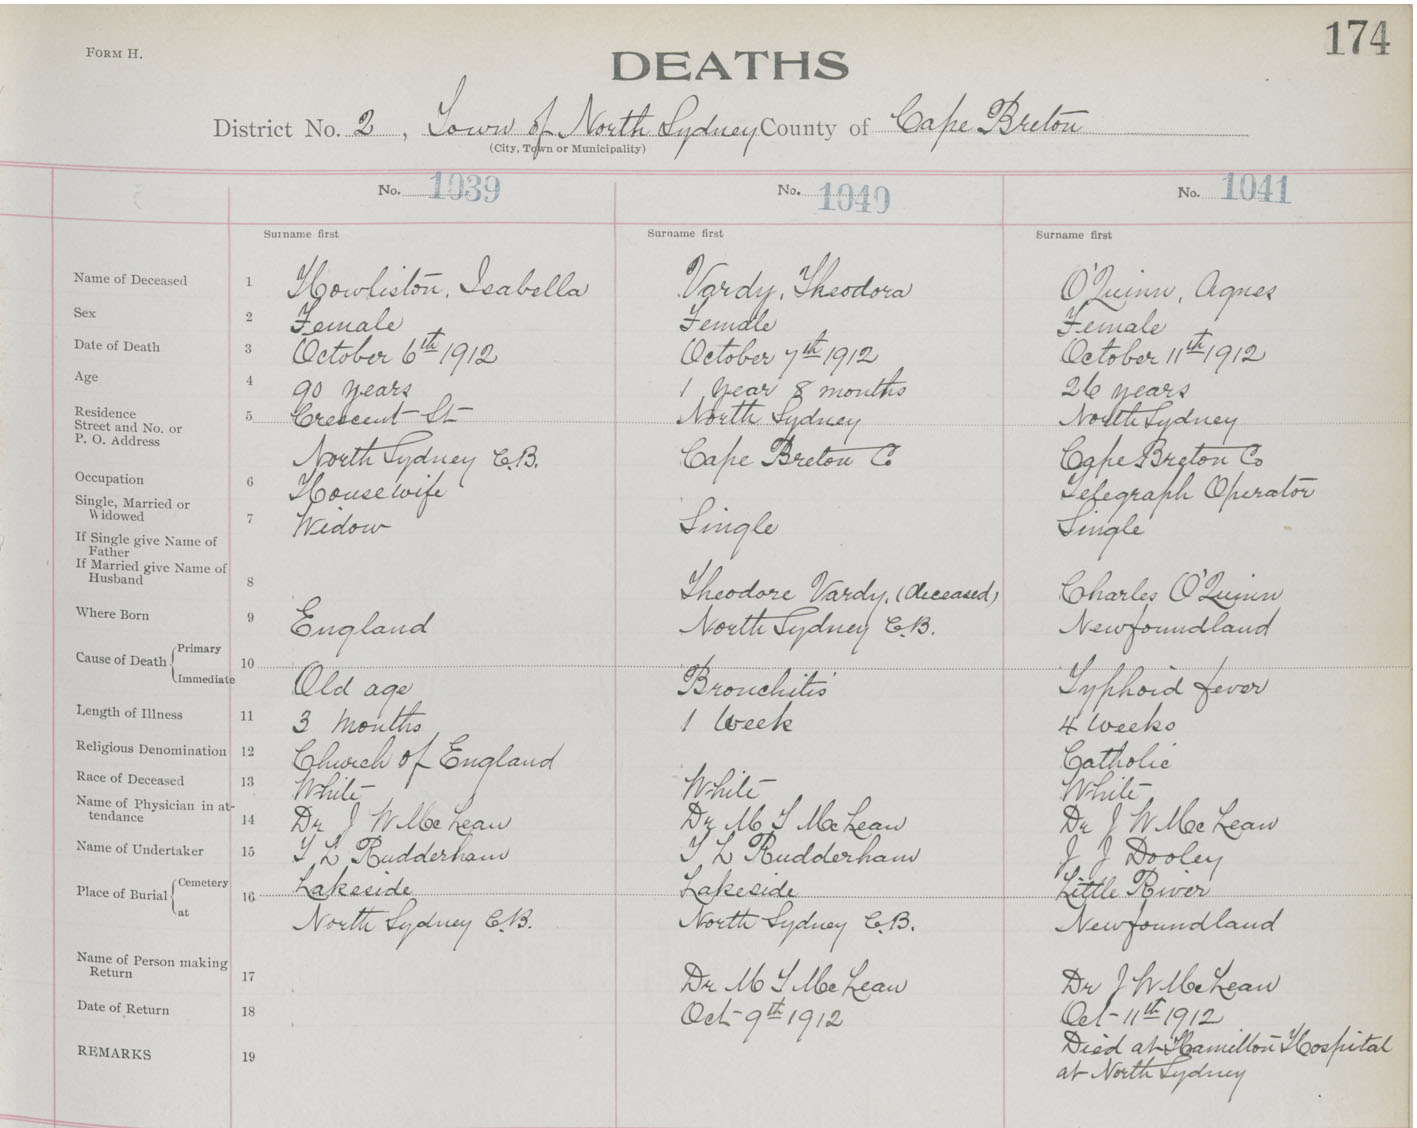 174
FORM H.
DEATHS
District No. 2, Town of North Sydney County of Cape Breton
(City, Town or Municipality)
No. 1039 No. 1040 No. 1041
Surname first Surname first Surname first
Name of Deceased 1 Howliston, Isabella Vardy, Theodora O'Quinn, Agnes
Sex 2 Female Female Female
Date of Death 3 October 6th 1912 October 7th 1912 October 11th 1912
Age 4 90 years 1 year 8 months 26 years
Residence
Street and No. or 5 Crescent St North Sydney North Sydney
P. O. Address
North Sydney C.B. Cape Breton Co Cape Breton Co
Occupation 6 Housewife Telegraph Operator
Single, Married or
Widowed 7 Widow Single Single
If Single give Name of
Father
If Married give Name of
Husband 8 Theodore Vardy, (deceased) Charles O'Quinn
Where Born 9 England North Sydney C.B. Newfoundland
Cause of Death Primary 10
Immediate Old age Bronchitis Typhoid fever
Length of Illness 11 3 months 1 week 4 weeks
Religious Denomination 12 Church of England Catholic
Race of Deceased 13 White White White
Name of Physician in at-
tendance 14 Dr J W McLean Dr M T McLean Dr J W McLean
Name of Undertaker 15 T L Rudderham T L Rudderham J J Dooley
Place of Burial Cemetery 16 Lakeside Lakeside Little River
at North Sydney C.B. North Sydney C.B. Newfoundland
Name of Person making
Return 17 Dr M T McLean Dr J W McLean
Date of Return 18 Oct 9th 1912 Oct 11th 1912
REMARKS 19 Died at Hamilton Hospital
at North Sydney